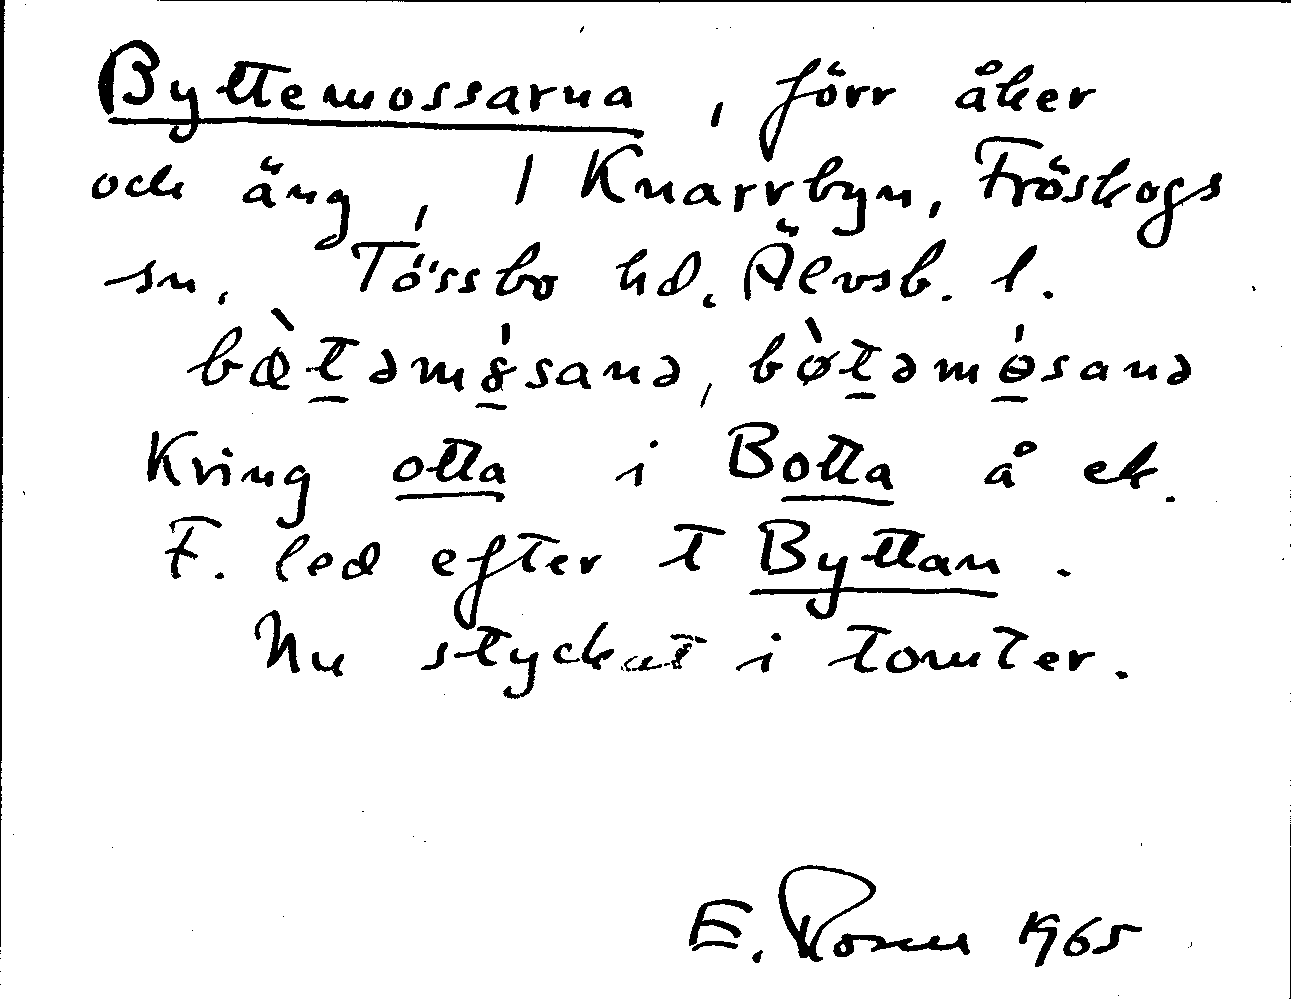 Byttemossarna, förr åker
och äng, 1 Knarrbyn, Fröskogs
sn, Tössbo hd. Älvsb. l.
bæ̀t̠əmȣ̠́sanə, bø̀t̠əmó̠sanə
Kring otta i Botta å ek.
F. led efter t Byttan.
Nu styckat i tomter.
E. Rosen 1965